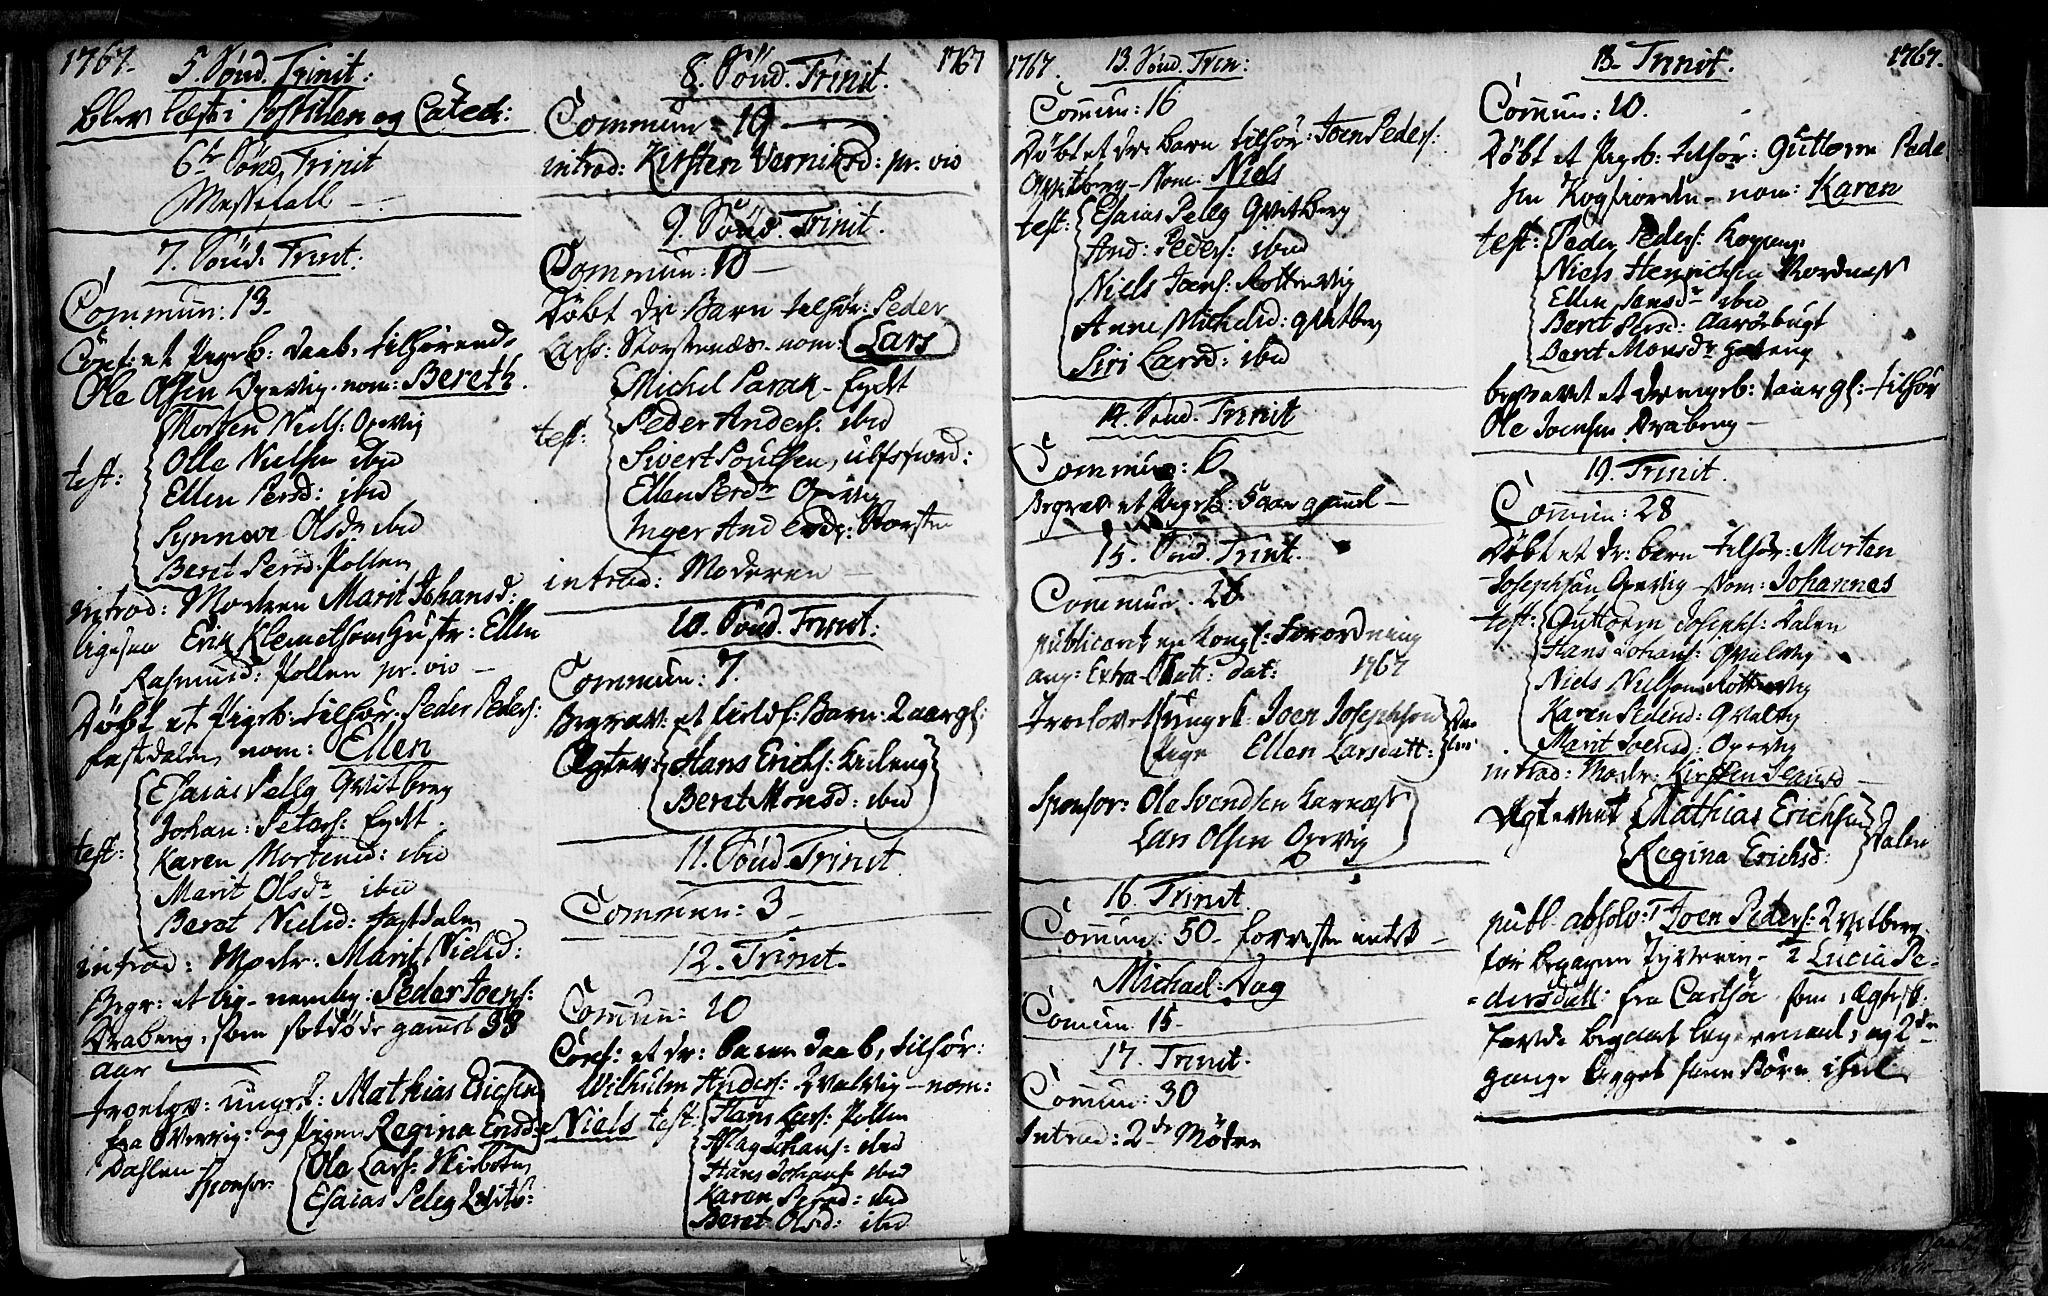 1767.
5. Sönd. Trinit:
blev læst i Postillen og Catech:
6te Sönd. Trinit
Messefall -
7. Sönd. Trinit:
Commun: 13.
Conf: et Pigeb: daab, tilhörend
Ole Olsen Opevig. nom: Bereth.
test:
Morten Niels: Opevig
Olle Nielsen ibid
Ellen Persd: ibid
Synnove Olsdr ibid
Beret Persd: Pollen
introd: Moderen Marit Johansd:
ligesaa Erik Klemetsøns Hustr: Ellen
Rasmusd: Pollen pr. vio -
Döbt et Pigeb: tilhör: Peder Peders:
fastdalen nom: Ellen
test:
Esaias Pelly Qvitberg
Johan: Peters: Eydt.
Karen Mortensd: ibid
Marit Olsdr ibid
Beret Nielsd: fastdalen
introd: Modr: Marit Nielsd:
Begr: et lig - nemlig: Peder Joens:
Draberg, som sotdöde gammel 33
aar
troelov: ungek: Mathias Erichsen
fra Opevig: og Pigen Regina Ersd:
Dahlen
Sponsor
Ole Lars: Skibotn
Esaias Peleg Qvitb:
8. Sönd. Trinit.
1767
Commun: 19
introd: Kirsten Vernichsd: pr. vio
9. Sönd. Trinit.
Commun: 10 -
Döbt dr Barn tilhör: Peder
Lars: Storstenæs. nom: Lars
test:
Michel Parak - Eydt
Peder Anders: ibid
Sivert Poulsen, ulfsfiord:
Ellen Persdr Opevig
Inger And Ersdr: Storsten
introd: Moderen -
10. Sönd. Trinit:
Commun: 7.
Begrav: et Barn: 2 aar gl:
Ægtev:
Hans Erichs: Kileng
Beret Monsd: ibid
11. Sönd. Trinit.
Commun: 3 -
12. Trinit.
Commun: 20
Conf: et dr: barn daab, tilhör:
Wilhelm Anders: Qvalvig - nom:
Niels test:
Hans Lars: Pollen
Mag Johans: ibid
Hans Johans: ibid
Karen Persd: ibid
Beret Olsd: ibid
1767.
13. Sönd. Trin:
Commun: 16
Döbt et dr: barn tilhör: Joen Peders:
Qvitberg - Nom: Niels
test:
Esaias Peleg Qvitberg
And: Peders: ibid
Niels Joens: Rottenvig
Anne Michelsd: Qvitberg
Siri Larsd: ibid
14. Sönd. Trinit
Commun: 6
Begrav et Pigeb: 5 aar gammel -
15. Sönd. Trinit.
Commun. 26
publiceret en Kongl: Forordning
ang: Extra-Skatt: dat: 1767
troelovet
ungek: Joen Josephsen
Pige Ellen Larsdatt:
Sponsor: Ole Svendsen Karnæs
Lars Olsen Opevig
16. Trinit.
Commun: 50 -
Michael: Dag
Comun: 15 -
17. Trinit.
Comun: 30
Introd: 2de Mödre
18. Trinit.
1767.
Commun: 10.
Döbt et Pigeb: tilhör: Guttorm Peder
sen Kogfiorden - nom: Karen
test:
Peder Peders: Koppang
Niels Henrichsen Nordnæs
Ellen Jansdr ibid
Beret Persd: Aaröebugt
Beret Monsdr
begravet et drengeb: 1 aar gl: tilhör
Ole Joensen Draberg -
19. Trinit.
Comun: 28
Döbt et dr: barn tilhör: Morten
Josephsen Opevig - Nom: Johannes
test:
Guttorm Josephs: Dalen
Hans Johans: Qvalvig
Niels Nielsen Rottenvig
Karen Pedersd: Qvalvig
Marit Joensd: Opevig
introd: Modr: Kirsten -
Ægteviet
Mathias Erichsen
Regina Erichsd:
Dalen
publ: absolv: 1 Joen Peders: Qvitberg
for begagen Tyverie - 2 Lucia Pe-
dersdatt: fra Carlsöe som
havde begaaet Leyermaal, og 2de
gange lagt sine Börn ihiel